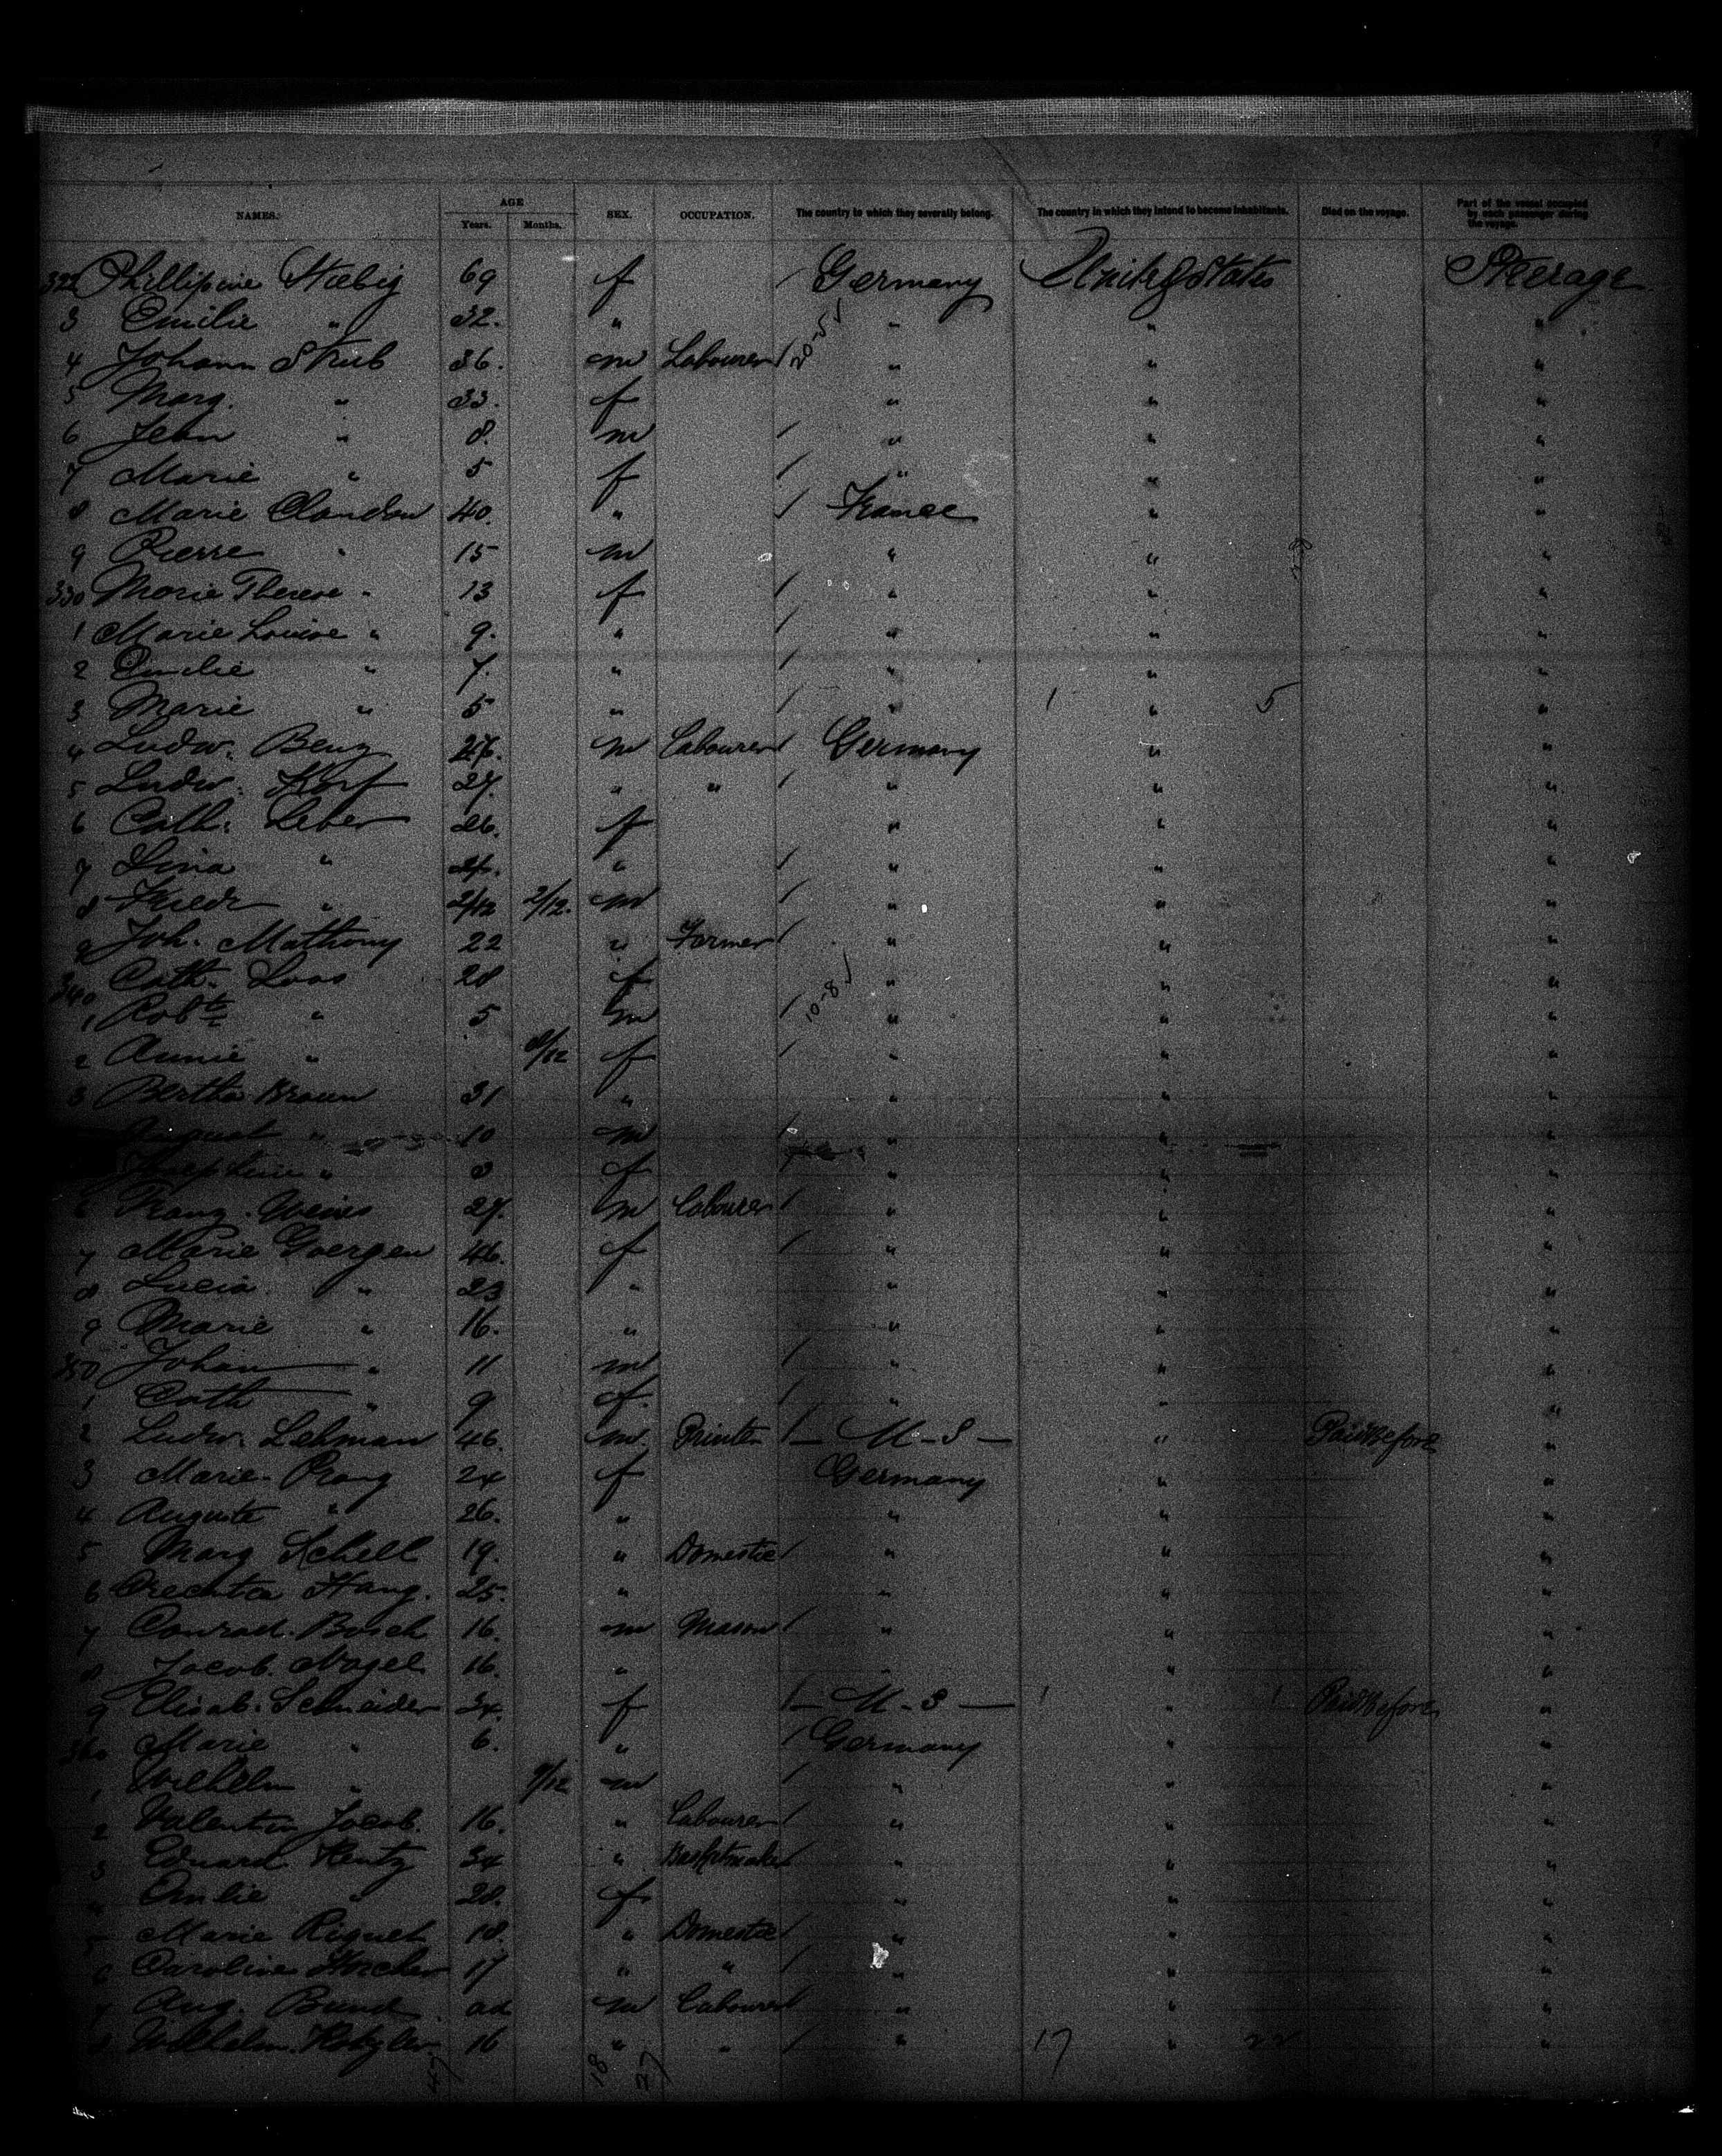 NAMES. AGE Years. Months. SEX. OCCUPATION. The country to which they severally belong. The country in which they intend to become inhabitants. Died on the voyage. Part of the vessel occupied by each passenger during the voyage.
322 Phillipine Stæbig 69 f / Germany United States Steerage
3 Emilie " 32. " " " "
4 Johann Strub 36. m Labourer / 20-5 " " "
5 Marg. " 33. f " " "
6 Jean " 8. m / " " "
7 Marie " 5 f / " " "
8 Marie Claudon 40. " / France " "
9 Pierre " 15 m " " "
330 Marie Therese " 13 f / " " "
1 Marie Louise " 9. " / " " "
2 Emilie " 7. " / " " "
3 Marie " 5 " / " 1 " 5 "
4 Ludw. Benz 27. m Labourer / Germany " "
5 Ludw. Korf 27. " " / " " "
6 Cath. Leber 26. f " " "
7 Lina " 24. " / " " "
8 Friedr " 2/12 2/12. m / " " "
9 Joh. Mathony 22 " Farmer / " " "
340 Cath. Loos 28 f 10-8 " " "
1 Robt " 5 m / " " "
2 Annie " /12 f / " " "
3 Bertha Braun 31 " " " "
August " 10 m / " " "
Josephine " 8 f / " " "
6 Franz. Weiss 27. m Labourer / " " "
7 Marie Goergen 46. f / " " "
8 Lucia. " 23 " " " "
9 Marie " 16. " " " "
350 Johann " 11 m / " " "
1 Cath " 9 f. / " " "
2 Ludw. Lehmann 46. m. Printer / — U-S — " Paid before "
3 Marie Prang 24 f Germany " "
4 Auguste " 26. " " " "
5 Marg Schell 19. " Domestic / " " "
6 Haug. 25. " " " "
7 Conrad. Bosch 16. m Mason / " " "
8 Jacob. Nagel 16. " " " "
9 Elisab. Schneider 34. f / — U-S — 1 " 1 Paid before "
360 Marie " 6. " / Germany " "
1 Wilhelm " 9/12 m / " " "
2 Valentin Jacob. 16. " Labourer / " " "
3 Eduard Hentz 34 " Basketmaker / " " "
4 Emlie " 28. f " " "
5 Marie Riquet 18. " Domestic / " " "
6 Caroline 17 " " / " " "
7 Aug. Bund ad m Labourer / " " "
8 Wilhelm. 16 " " / " 17 " 22 "
47 18 27